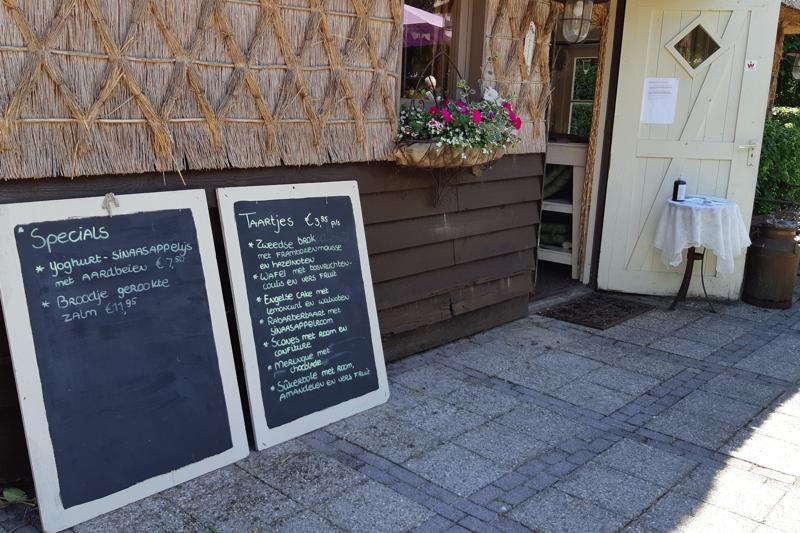 Specials
* Yoghurt - SINAASAPPELIJS
met AARDBEIEN €7,50
* Broodje gerookte
zalm €11,95
TAARTJES €3,95 p/s
* Zweedse BROK
met FRAMBOZENMOUSSE
en HAZELNOTEN
* WAFEL met BOSVRUCHTEN-
COULIS EN VERS FRUIT
* Engelse CAKE met
LEMONCURD en WALNOTEN
* RABARBERTAART met
SINAASAPPELROOM
* SCONES met ROOM en
CONFITURE
* MERINGUE met
chocolade
* SÛKERBOLE met ROOM,
AMANDELEN en VERS FRUIT